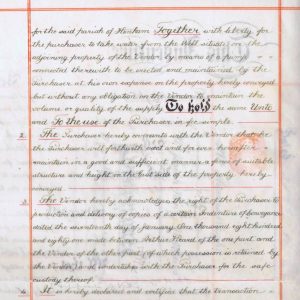 for the said parish of Horsham Together with liberty for
the purchaser to take water from the Well situate on the
adjoining property of the Vendor by means of a pump
connected therewith to be erected and maintained by the
Purchaser at his own expense on the property hereby conveyed
but without any obligation on the Vendor to maintain the
volume or quality of the supply To hold the same Unto
and To the use of the Purchaser in fee simple
2. The Purchaser hereby covenants with the Vendor that he
the Purchaser will forthwith erect and for ever hereafter
maintain in a good and sufficient manner a fence of suitable
structure and height on the East side of the property hereby
conveyed
3. The Vendor hereby acknowledges the right of the Purchaser to
production and delivery of copies of a certain Indenture of Conveyance
dated the seventeenth day of January One thousand eight hundred
and eighty one made between Arthur of the one part and
the Vendor of the other part (of which possession is retained by
the Vendor) and undertakes with the Purchaser for the safe
custody thereof
4. It is hereby declared and certified that the transaction